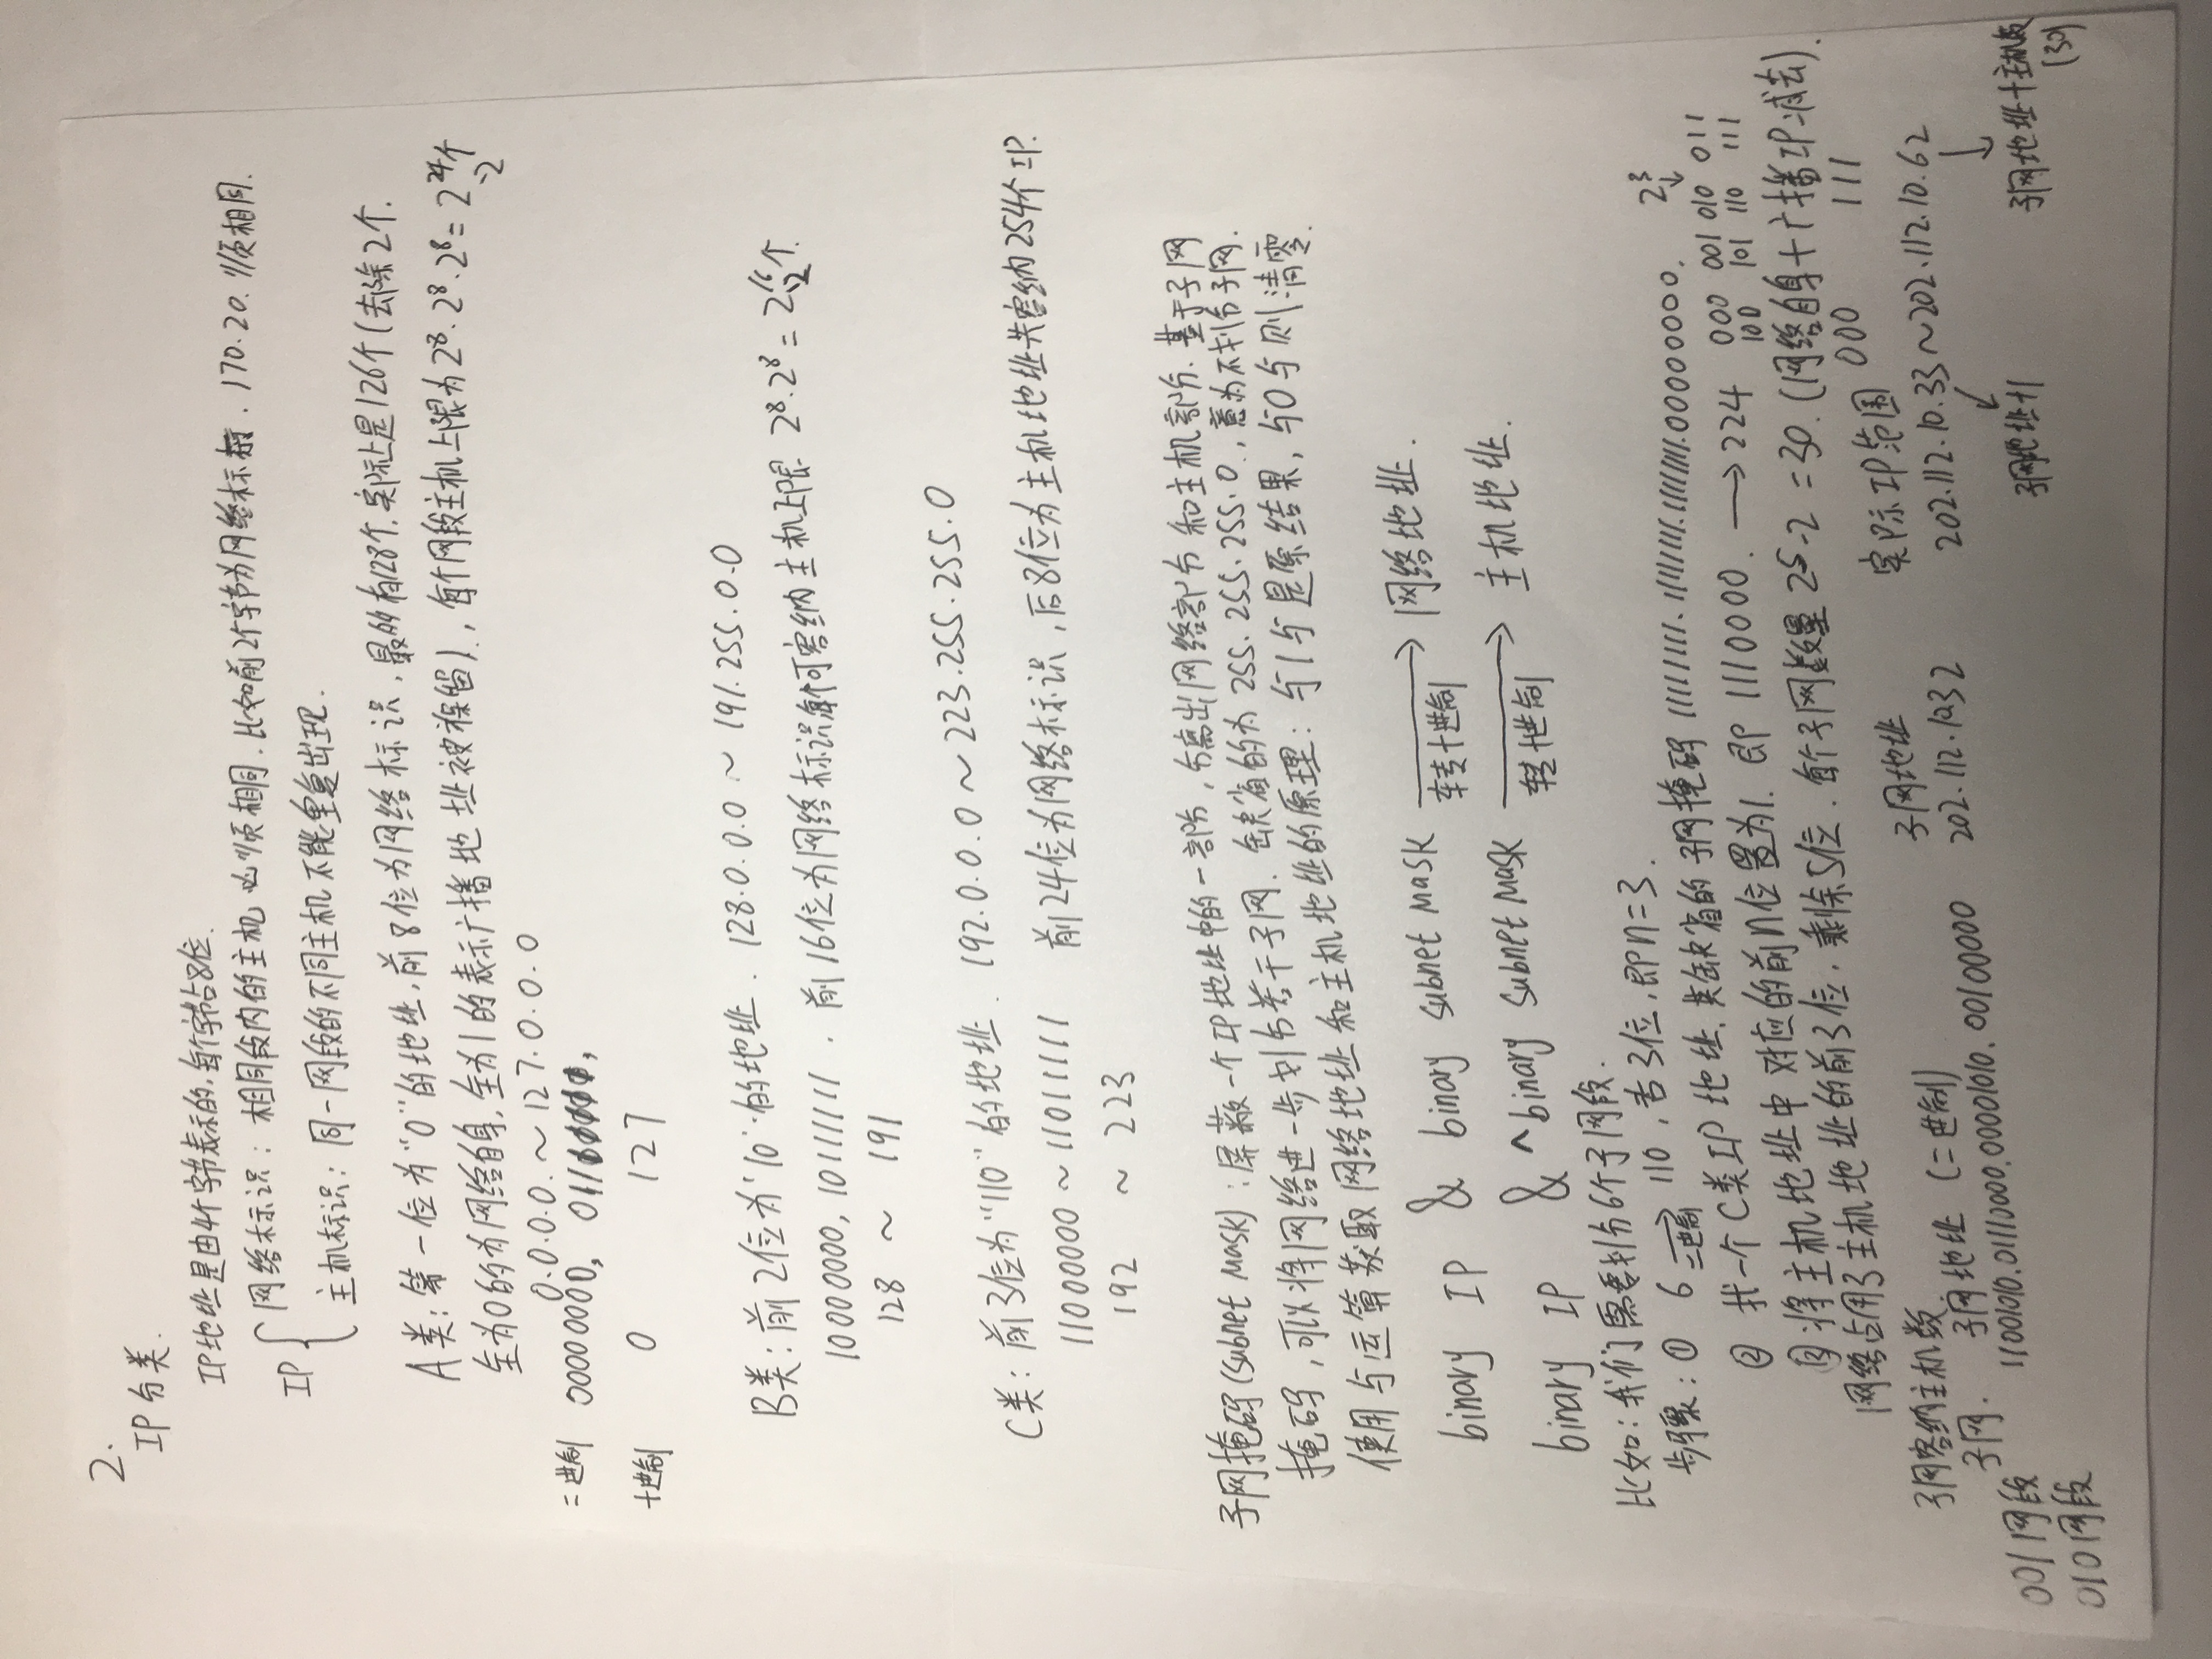 2.
IP分类.
IP地址是由4个字节表示的,每个字节占8位.
IP { 网络标识: 相同段内的主机必须相同.比如前2个字节为网络标 . 170.20.须相同.
主机标识: 同一网段的不同主机不能重复出现.
A类: 第一位为"0"的地址,前8位为网络标识,最多有128个,实际上是126个(去除2个.
全为0的为网络自身,全为1的表示广播地址被保留),每个网段主机上限为2⁸·2⁸·2⁸=2²⁴个
-2
0.0.0.0.~127.0.0.0
二进制 00000000, 01111111,
十进制 0 127
B类: 前2位为'10'的地址. 128.0.0.0 ~ 191.255.0.0
10000000, 10111111. 前16位为网络标识每个可容纳主机上限 2⁸·2⁸=2¹⁶个.
-2
128 ~ 191
C类: 前3位为"110"的地址. 192.0.0.0~223.255.255.0
11000000~11011111 前24位为网络标识,后8位为主机地址共容纳254个IP.
192 ~ 223
子网掩码(subnet mask): 屏蔽一个IP地址中的一部分,分离出网络部分和主机部分.基于子网
掩码,可以将网络进一步划分若干子网.缺省的为255.255.255.0,意为不划分子网.
使用与运算获取网络地址和主机地址的原理: 与1与是原结果,与0与则清零.
binary IP & binary subnet mask → 转十进制 网络地址.
binary IP & ^binary subnet mask → 转十进制 主机地址.
比如: 我们需要划分6个子网段.
步骤: ① 6 → 二进制 110, 占3位,即n=3.
② 找一个C类IP地址.其缺省的子网掩码 11111111.11111111.11111111.00000000. 2³
↓
③ 将主机地址中对应的前n位置为1. 即1110000. → 224 000 001 010 011
100 101 110 111
网络占用了主机地址的前3位,剩余5位.每个子网数量2⁵-2=30.(网络自身+广播IP减去).
000 111
子网容纳主机数.
子网. 子网地址(二进制) 子网地址 实际IP范围
001网段 11001010.01110000.00001010.00100000 202.112.10.32 202.112.10.33~202.112.10.62
子网地址+1 子网地址+主机数
(30)
010网段